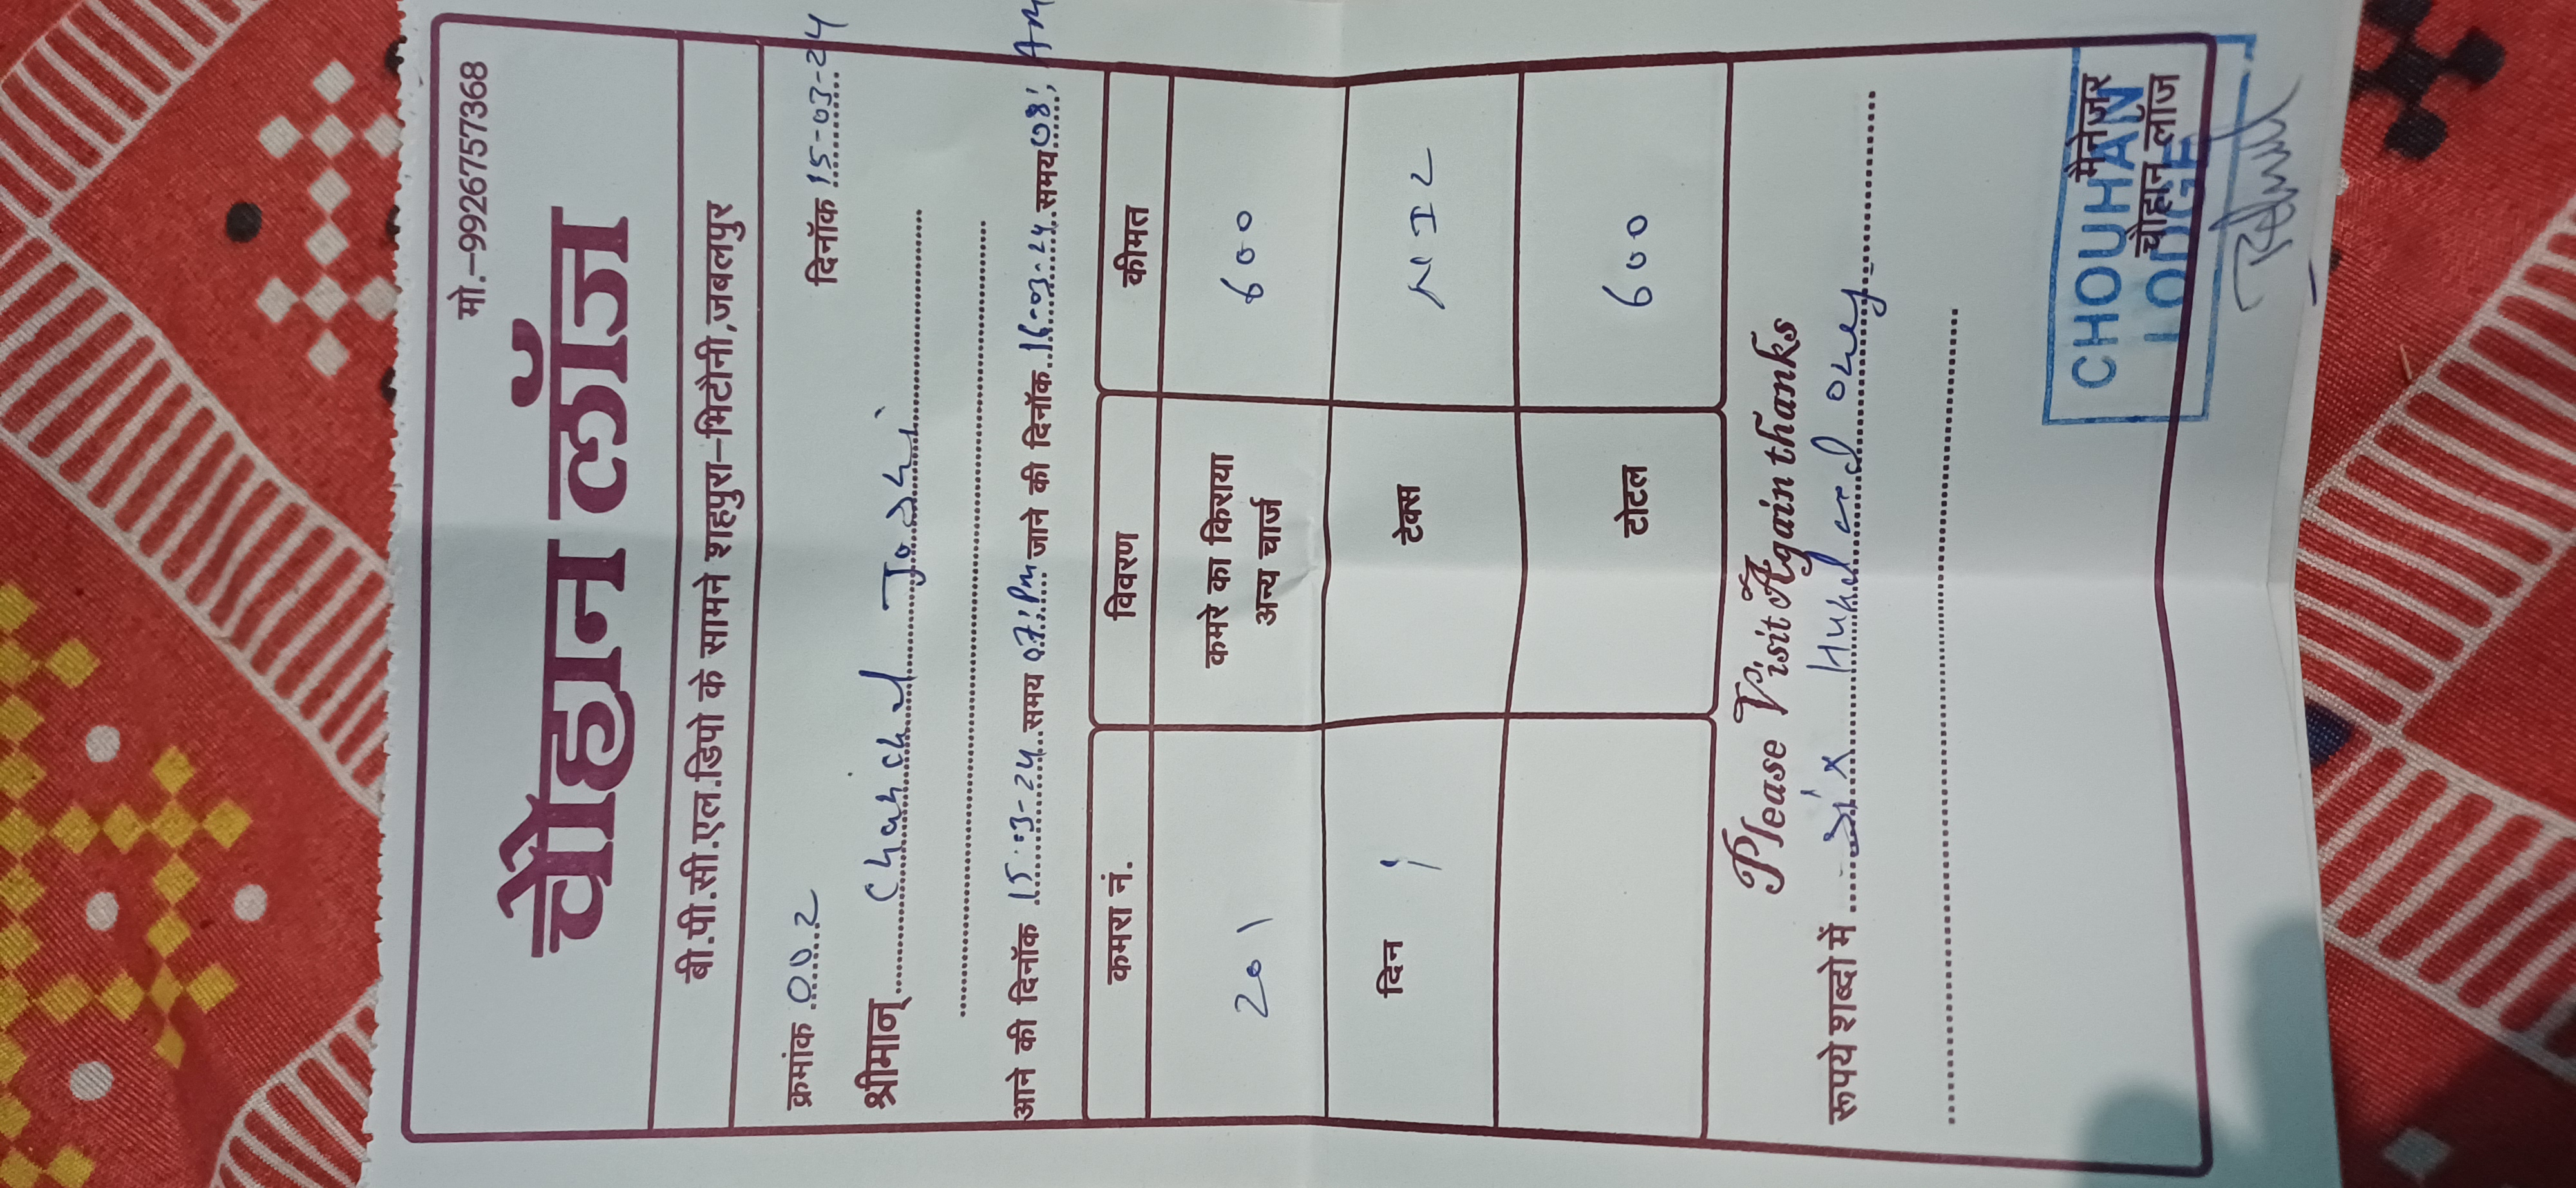 मो.–9926757368
चौहान लॉज
बी.पी.सी.एल.डिपो के सामने शहपुरा–भिटौनी,जबलपुर
क्रमांक 002 दिनॉक 15-03-24
श्रीमान्
आने की दिनॉक 15-3-24 समय 07; PM जाने की दिनॉक 16-03-24 समय 08; AM
कमरा नं. विवरण कीमत
201 कमरे का किराया 600
अन्य चार्ज
दिन 1 टेक्स NIL
टोटल 600
Please Visit Again thanks
रूपये शब्दो में Six Hundred only
CHOUHAN LODGE
मैनेजर
चौहान लॉज